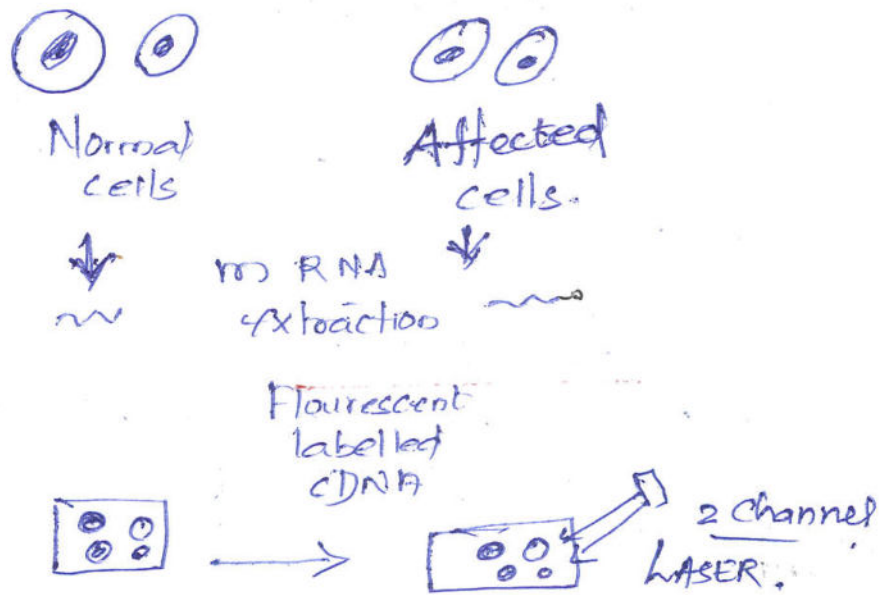 Normal
cells
Affected
cells.
m RNA
extraction
Flourescent
labelled
cDNA
2 Channel
LASER.